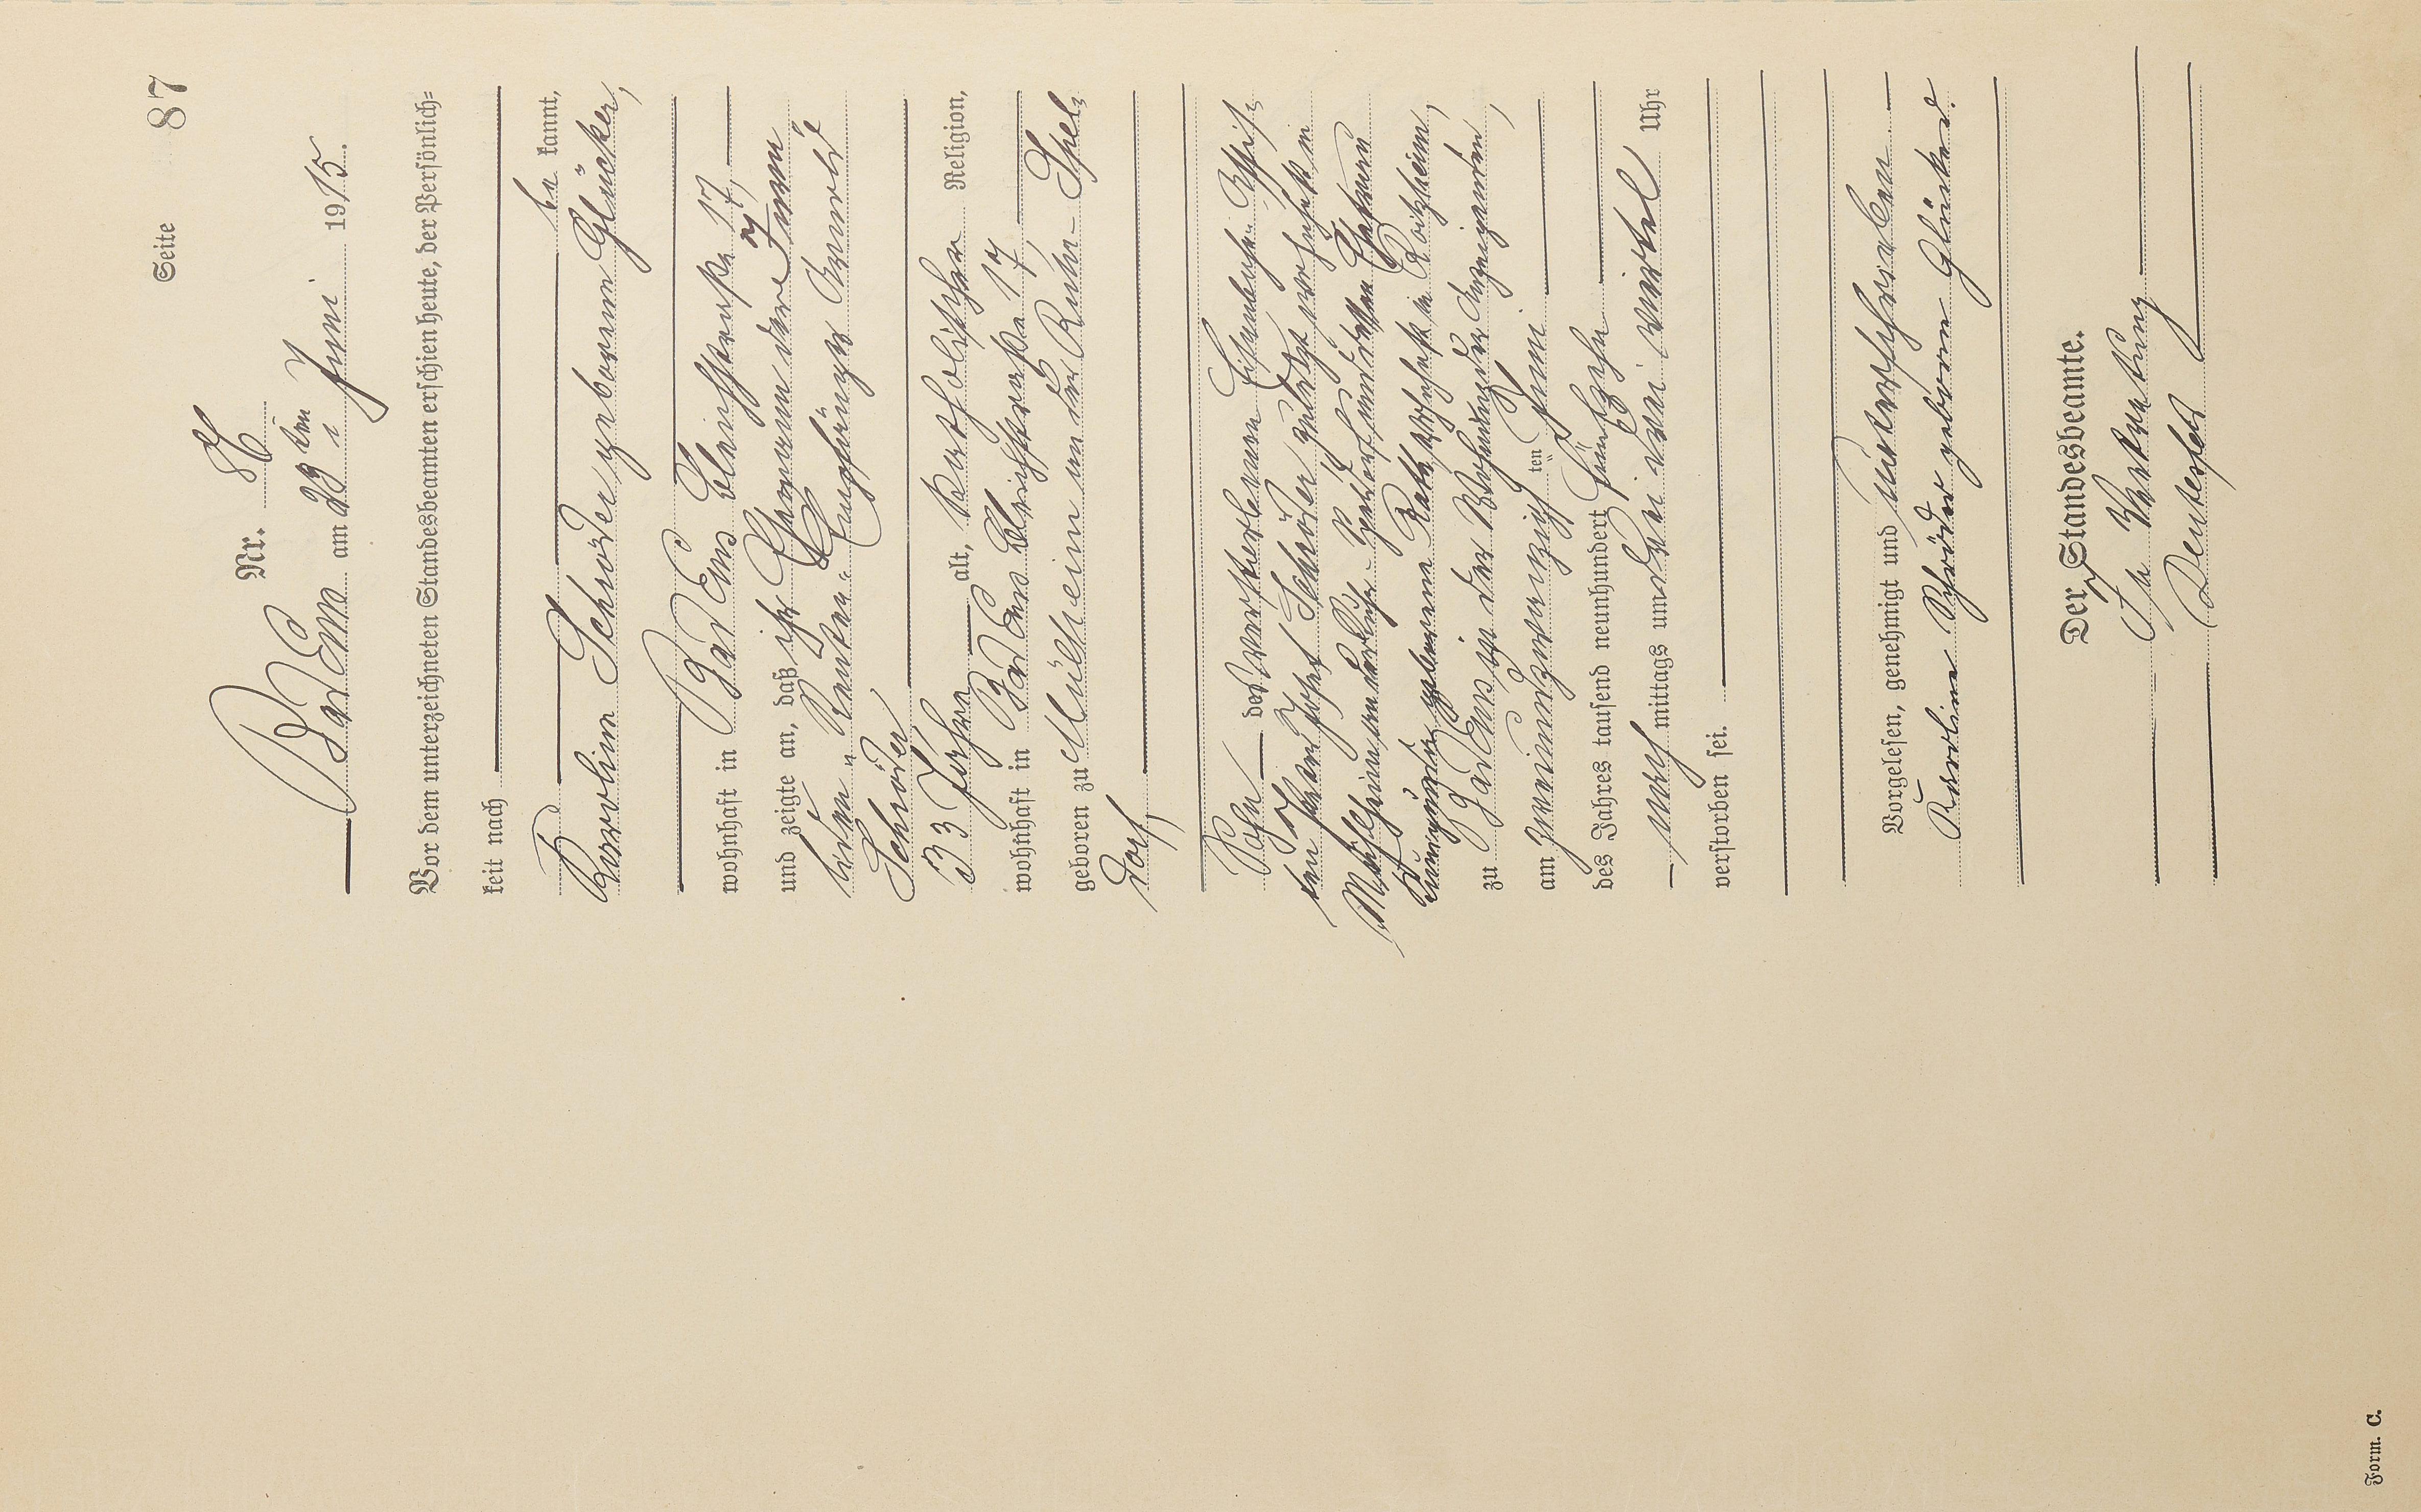 Seite 87
Nr. 86
Bad Ems am 22ten Juni 1915.
Vor dem unterzeichneten Standesbeamten erschien heute, der Persönlich=
keit nach
be kannt,
Karoline Schröder geborene Glücker,
wohnhaft in Bad Ems Bleichstraße 17,
und zeigte an, daß ihr Ehemann der Inva
liden Renten Empfänger
Schröder,
33 Jahre alt, katholischer Religion,
wohnhaft in Bad Ems Bleichstraße 17,
geboren zu Mülheim an der Ruhr - Spel
dorf,
Sohn des verstorbenen
Johann Josef Schröder zuletzt wohnhaft in
Mühlheim an der Ruhr - Speldorf und dessen Ehefrau
Kunigunde geborenen wohnhaft in Roitzheim,
zu Bad Ems in der Wohnung der Anzeigenden,
am zweiundzwanzigsten Juni
des Jahres tausend neunhundert fünfzehn
nach mittags um drei viertel Uhr
verstorben sei.
Vorgelesen, genehmigt und unterschrieben.
Karoline Schröder geborene Glücker.
Der Standesbeamte.
In Vertretung
Form. C.